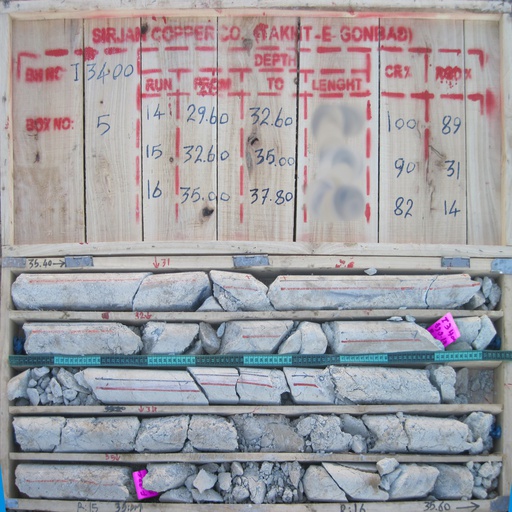 SIRJAN COPPER CO. (TAKHT-E-GONBAD)
BH NO: I3400
DEPTH
RUN FROM TO LENGHT CR% RQD%
BOX NO: 5
14 29.60 32.60 100 89
15 32.60 35.00 90 31
16 35.00 37.80 82 14
35.40 →
R:15
R:16 35.60 →